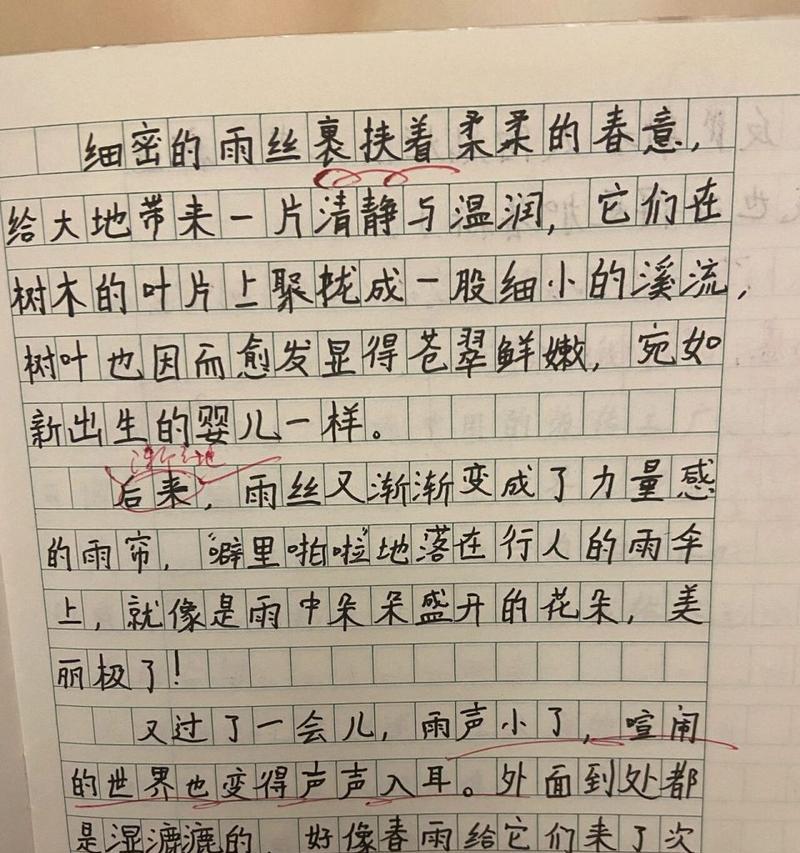 细密的雨丝裹扶着柔柔的春意，
给大地带来一片清静与温润，它们在
树木的叶片上聚拢成一股细小的溪流，
树叶也因而愈发显得苍翠鲜嫩，宛如
新出生的婴儿一样。
渐渐地
后来，雨丝又渐渐变成了力量感
的雨帘，“噼里啪啦”地落在行人的雨伞
上，就像是雨中朵朵盛开的花朵，美
丽极了！
又过了一会儿，雨声小了，喧闹
的世界也变得声声入耳。外面到处都
是湿漉漉的，好像春雨给它们来了次